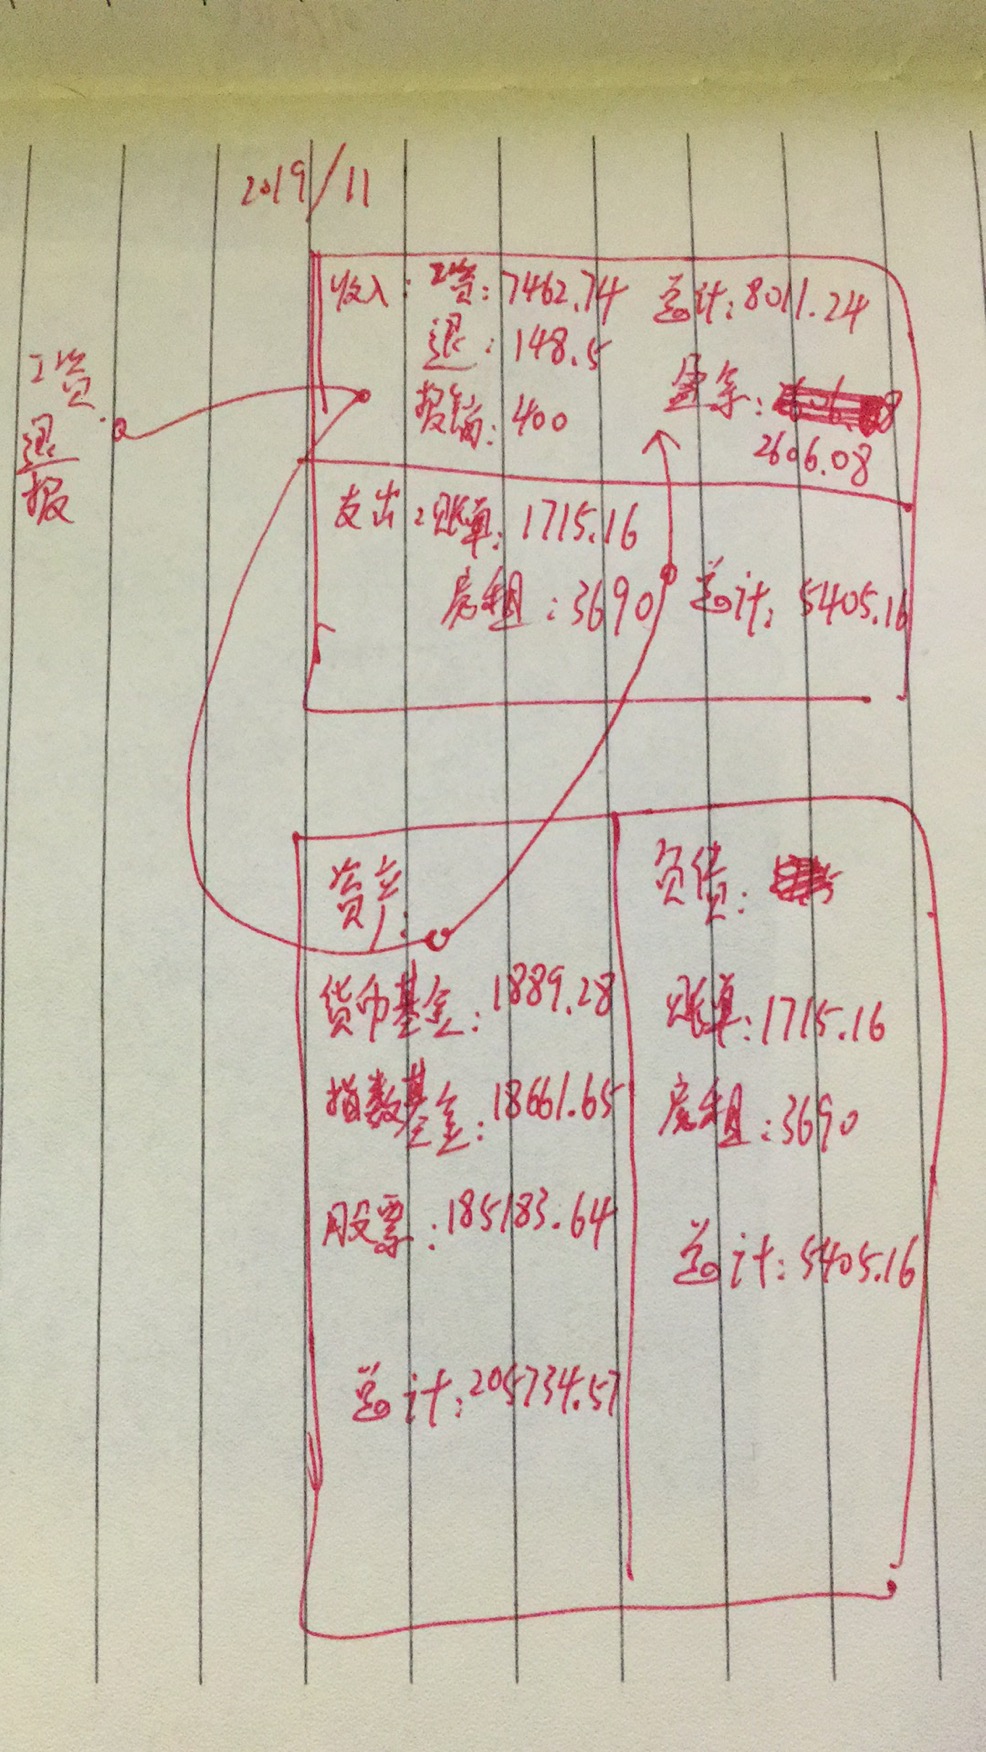 2019/11
收入：工资：7462.74 总计：8011.24
退：148.5
报销：400
盈余：
2606.08
工资
退
报
支出：账单：1715.16
房租：3690 总计：5405.16
资产：
货币基金：1889.28
指数基金：18661.65
股票：185183.64
总计：205734.57
负债：
账单：1715.16
房租：3690
总计：5405.16